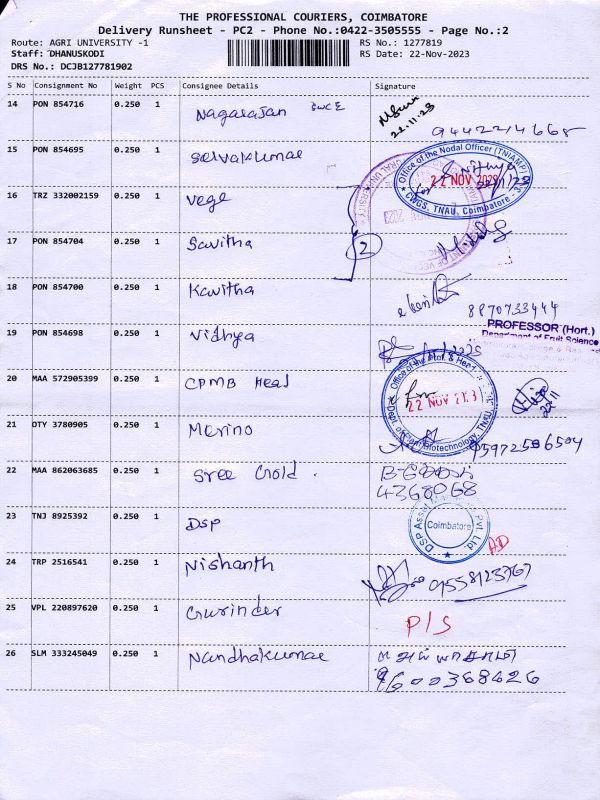 THE PROFESSIONAL COURIERS, COIMBATORE
Delivery Runsheet - PC2 - Phone No.:0422-3505555 - Page No.:2
Route: AGRI UNIVERSITY -1 RS No.: 1277819
Staff: DHANUSKODI RS Date: 22-Nov-2023
DRS No.: DCJB127781902
S No Consignment No Weight PCS Consignee Details Signature
14 PON 854716 0.250 1 Nagarajan
22.11.23
9442214668
15 PON 854695 0.250 1 Selvakumar
Office of the Nodal Officer (TNIAMP)
22 NOV 2023
CWGS, TNAU, Coimbatore - 3.
16 TRZ 332002159 0.250 1 Vege
17 PON 854704 0.250 1 Savitha 2
18 PON 854700 0.250 1 Kavitha
8870733444
PROFESSOR (Hort.)
Department of Fruit Science
19 PON 854698 0.250 1 Vidhya
20 MAA 572905399 0.250 1 CPMB Head
Office of the Prof. & Head
22 NOV 2023
Biotechnology, TNAU
21 OTY 3780905 0.250 1 Merino
9597256504
22 MAA 862063685 0.250 1 Sree Gold
4368068
23 TNJ 8925392 0.250 1 DSP
DSP Asset Pvt. Ltd.
Coimbatore
AD
24 TRP 2516541 0.250 1 Nishanth
25 VPL 220897620 0.250 1 Gurinder P/S
26 SLM 333245049 0.250 1 Nandhakumar
9600368626